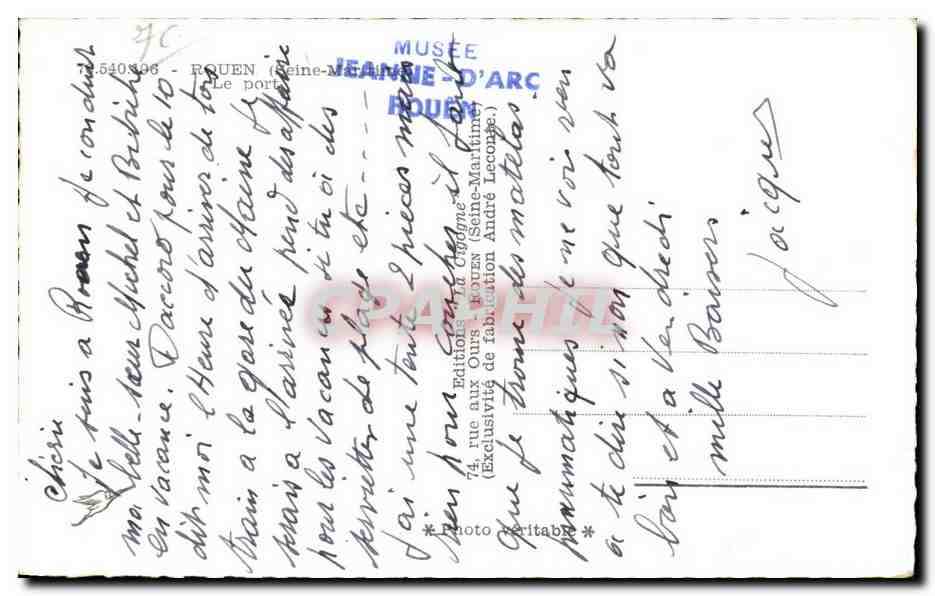 7C
76.540.106 - ROUEN (Seine-Maritime)
Le port
MUSÉE
JEANNE-D'ARC
ROUEN
Chérie
Je suis a Rouen je conduit
ma belle-sœur Michel et Brigitte
en vacance. Daccord pour le 10
dit moi l'Heure d'arriver de ton
train a la gare du Maine je
serais a l'arrivé prend des affaire
pour les vacances si tu ai des
serviettes de plage etc - - - -
J'ai une tente 2 pieces mais
rien pour coucher il faut
que je trouve des matelas
pneumatiques je ne vois rien
a te dire si non que tout va
bien et a Vendredi
mille Baisers
Jacques
Editions "La Cigogne"
74, rue aux Ours - ROUEN (Seine-Maritime)
(Exclusivité de fabrication André Leconte.)
* Photo véritable *
CPAPHIL